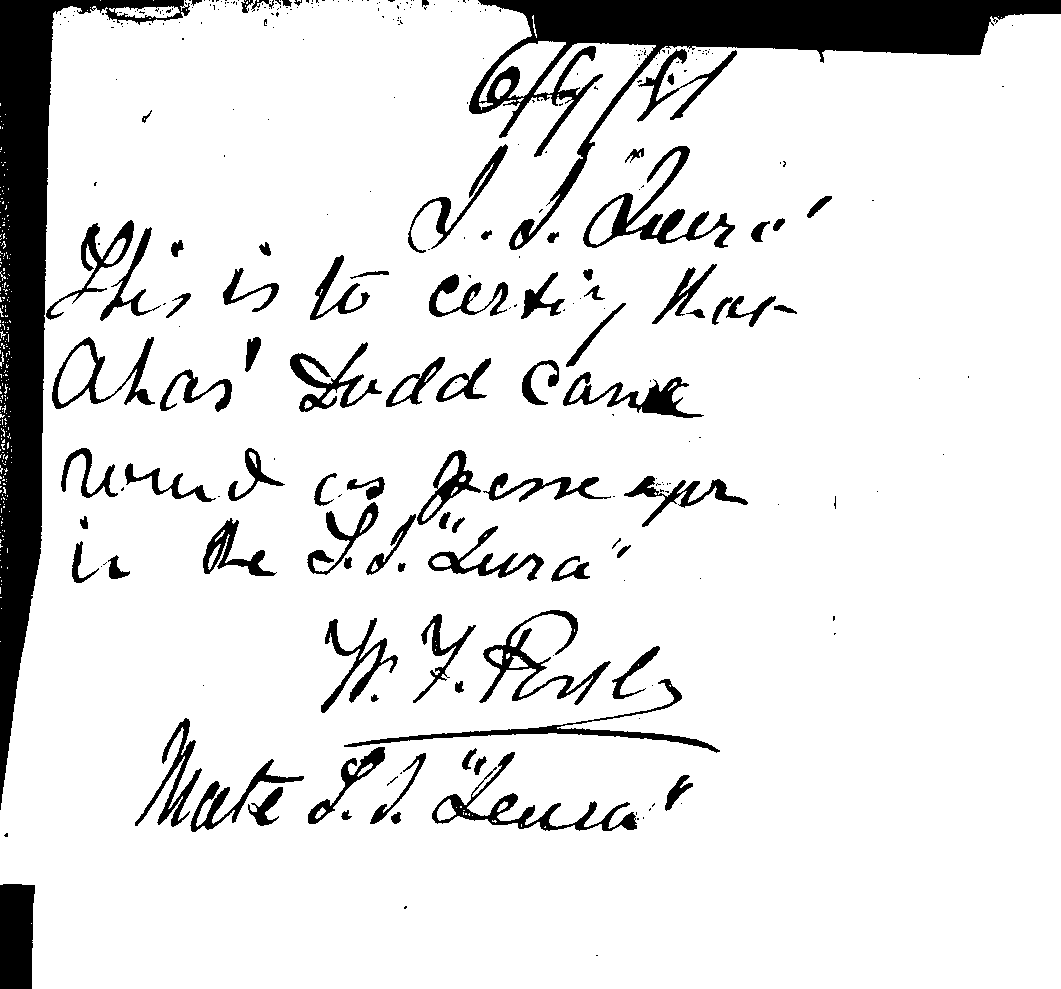 6/9/81
S.S. "Leura"
This is to certify that
Ahas' Dodd came
round as passenger
in the S.S. "Leura"
W. F.
Mate S.S. "Leura"